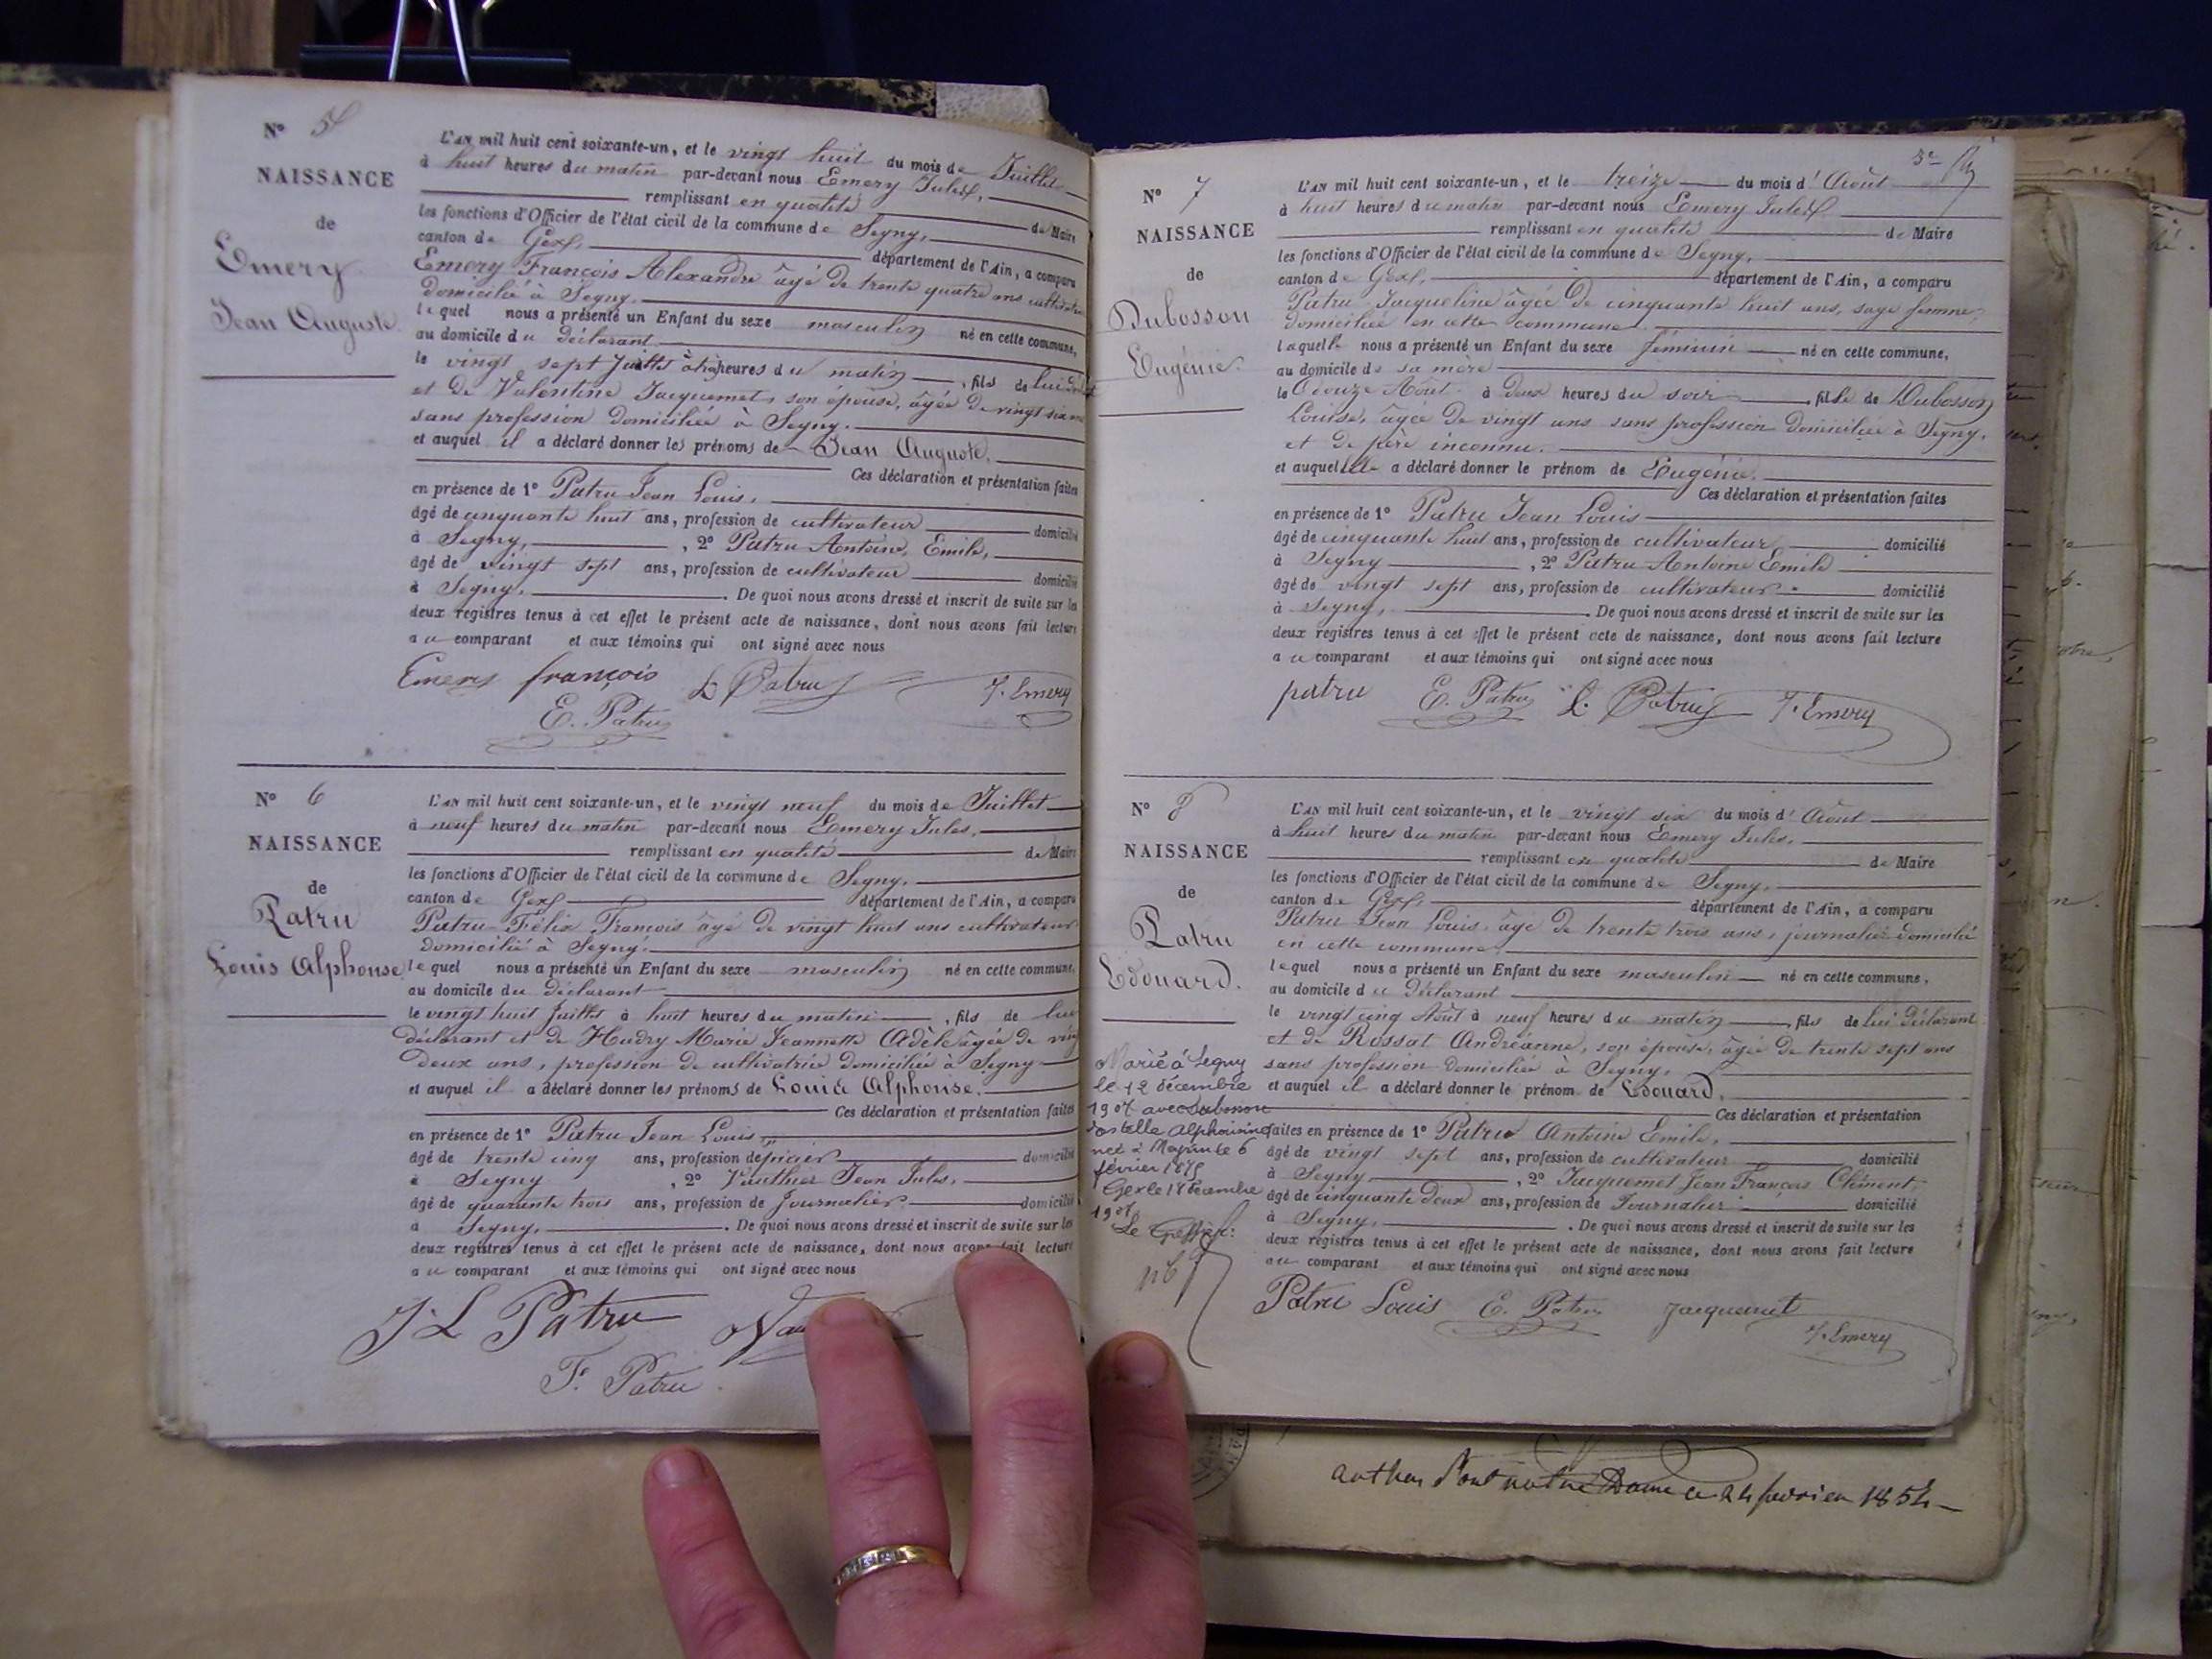 N° 5
NAISSANCE
de
Emery
Jean Auguste.
L'AN mil huit cent soixante-un, et le vingt huit du mois de Juillet
à huit heures du matin par-devant nous Emery Jules,
remplissant en qualité de Maire
les fonctions d'Officier de l'état civil de la commune de Segny,
canton de Gex, département de l'Ain, a comparu
Emery François Alexandre âgé de trente quatre ans cultivateur
domicilié à Segny.
lequel nous a présenté un Enfant du sexe masculin né en cette commune,
au domicile du déclarant
le vingt sept Juillet à heures du matin, fils de lui
et de Valentine Jacquemet, son épouse, âgée de vingt six ans
sans profession domiciliée à Segny.
et auquel il a déclaré donner les prénoms de Jean Auguste.
Ces déclaration et présentation faites
en présence de 1° Patru Jean Louis,
âgé de cinquante huit ans, profession de cultivateur domicilié
à Segny, , 2° Patru Antoine Emile,
âgé de vingt sept ans, profession de cultivateur domicilié
à Segny, . De quoi nous avons dressé et inscrit de suite sur les
deux registres tenus à cet effet le présent acte de naissance, dont nous avons fait lecture
au comparant et aux témoins qui ont signé avec nous
Emery françois L Patru J. Emery
E. Patru
N° 6
NAISSANCE
de
Patru
Louis Alphonse
L'AN mil huit cent soixante-un, et le vingt neuf du mois de Juillet
à neuf heures du matin par-devant nous Emery Jules,
remplissant en qualité de Maire
les fonctions d'Officier de l'état civil de la commune de Segny,
canton de Gex département de l'Ain, a comparu
Patru Félix François âgé de vingt huit ans cultivateur
domicilié à Segny.
lequel nous a présenté un Enfant du sexe masculin né en cette commune,
au domicile du déclarant
le vingt huit Juillet à huit heures du matin, fils de lui
déclarant et de Hudry Marie Jeannette Adèle âgée de vingt
deux ans, profession de cultivatrice domiciliée à Segny
et auquel il a déclaré donner les prénoms de Louis Alphonse.
Ces déclaration et présentation faites
en présence de 1° Patru Jean Louis,
âgé de trente cinq ans, profession d'épicier domicilié
à Segny , 2° Vauthier Jean Jules,
âgé de quarante trois ans, profession de Journalier domicilié
à Segny, . De quoi nous avons dressé et inscrit de suite sur les
deux registres tenus à cet effet le présent acte de naissance, dont nous avons fait lecture
au comparant et aux témoins qui ont signé avec nous
J L Patru
F. Patru
5e
N° 7
NAISSANCE
de
Dubosson
Eugénie.
L'AN mil huit cent soixante-un, et le treize du mois d'Août
à huit heures du matin par-devant nous Emery Jules
remplissant en qualité de Maire
les fonctions d'Officier de l'état civil de la commune de Segny,
canton de Gex, département de l'Ain, a comparu
Patru Jacqueline âgée de cinquante huit ans, sage femme,
domiciliée en cette commune
laquelle nous a présenté un Enfant du sexe féminin né en cette commune,
au domicile de sa mère
le douze Août à deux heures du soir, fille de Dubosson
Louise, âgée de vingt ans sans profession domiciliée à Segny,
et de père inconnu.
et auquel elle a déclaré donner le prénom de Eugénie.
Ces déclaration et présentation faites
en présence de 1° Patru Jean Louis
âgé de cinquante huit ans, profession de cultivateur domicilié
à Segny , 2° Patru Antoine Emile
âgé de vingt sept ans, profession de cultivateur domicilié
à Segny, . De quoi nous avons dressé et inscrit de suite sur les
deux registres tenus à cet effet le présent acte de naissance, dont nous avons fait lecture
au comparant et aux témoins qui ont signé avec nous
patru E. Patru L. Patru J. Emery
N° 8
NAISSANCE
de
Patru
Edouard.
L'AN mil huit cent soixante-un, et le vingt six du mois d'Août
à huit heures du matin par-devant nous Emery Jules,
remplissant en qualité de Maire
les fonctions d'Officier de l'état civil de la commune de Segny,
canton de Gex, département de l'Ain, a comparu
Patru Jean Louis, âgé de trente trois ans, journalier domicilié
en cette commune
lequel nous a présenté un Enfant du sexe masculin né en cette commune,
au domicile du déclarant
le vingt cinq Août à neuf heures du matin, fils de lui déclarant
et de Rossat Andréanne, son épouse, âgée de trente sept ans
sans profession domiciliée à Segny,
et auquel il a déclaré donner le prénom de Edouard,
Ces déclaration et présentation
faites en présence de 1° Patru Antoine Emile,
âgé de vingt sept ans, profession de cultivateur domicilié
à Segny , 2° Jacquemet Jean François Clément,
âgé de cinquante deux ans, profession de Journalier domicilié
à Segny, . De quoi nous avons dressé et inscrit de suite sur les
deux registres tenus à cet effet le présent acte de naissance, dont nous avons fait lecture
au comparant et aux témoins qui ont signé avec nous
Patru Louis E. Patru Jacquemet
J. Emery
Marié à Segny
le 12 décembre
avec
Alphonsine
née à 6
février
Gex le 18 Décembre
Le Greffier:
le 24 fevrier 1854